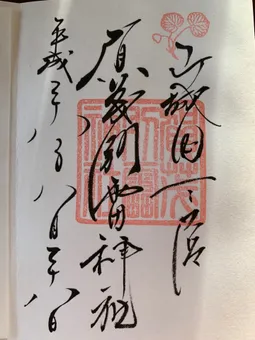 山城国一之宮
賀茂別雷神社
平成二十八年八月二十八日